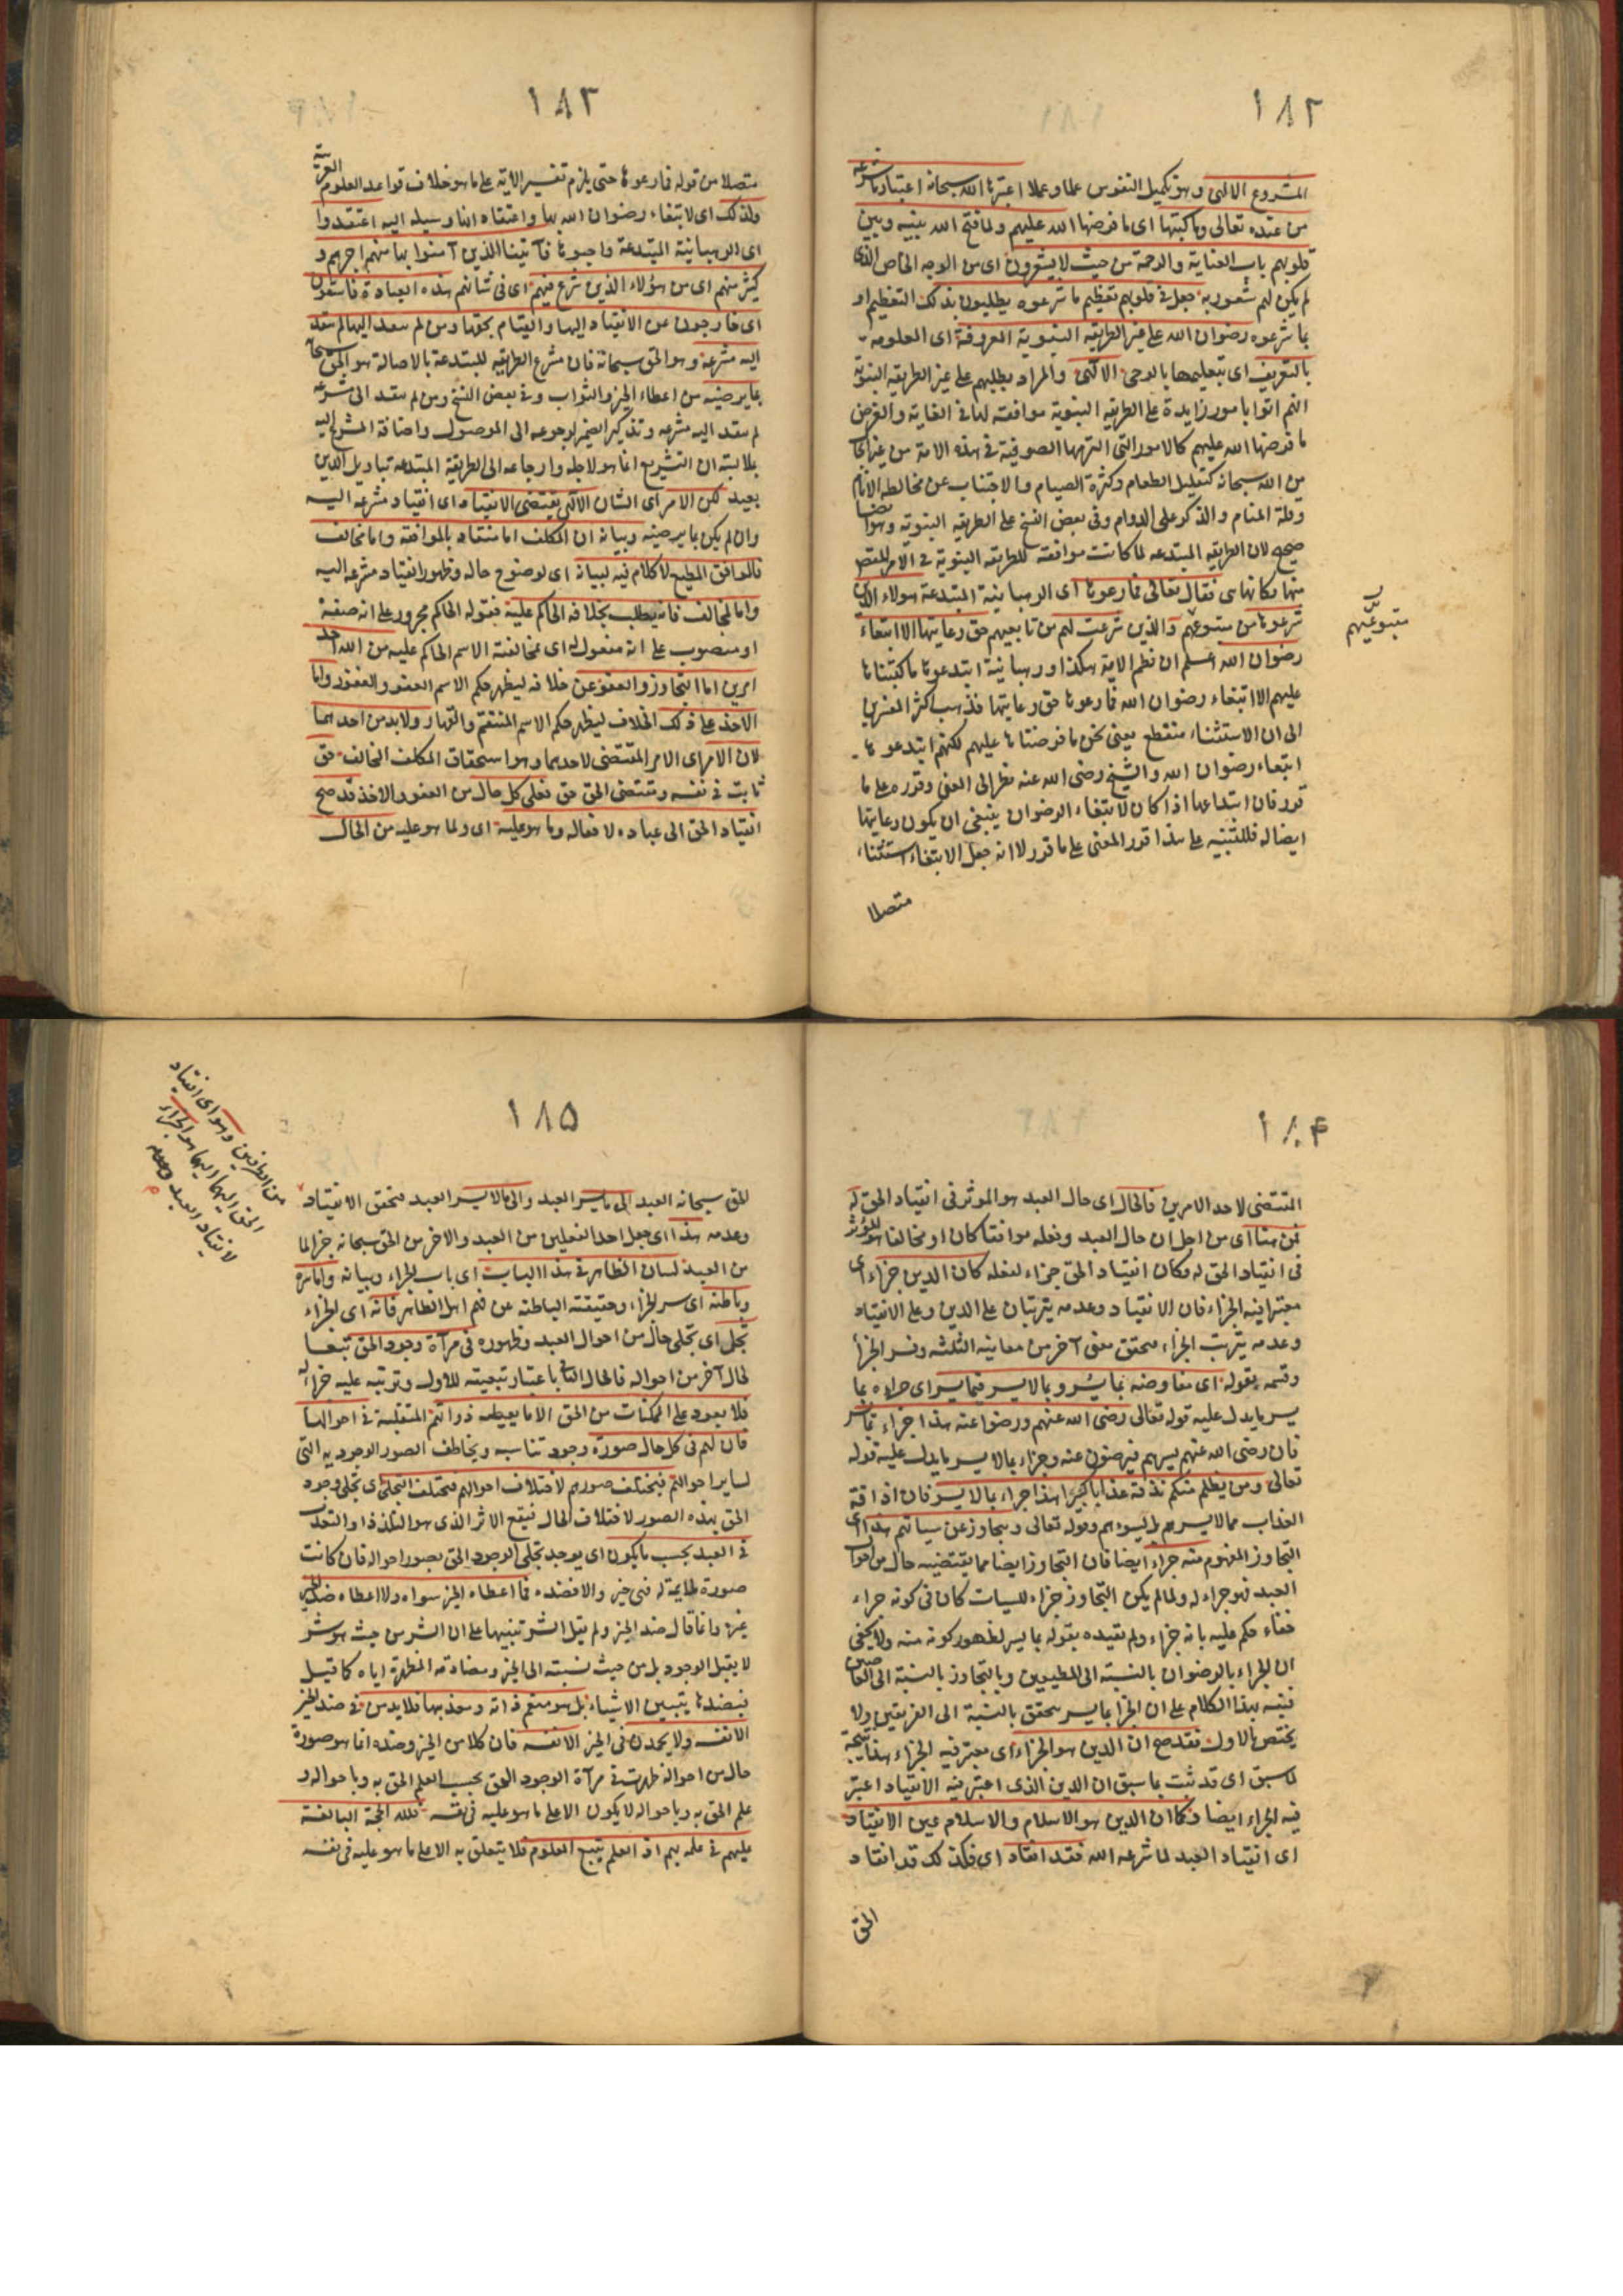 ١٨٢
المشروع الالهى وهو تكميل النفوس علما وعملا اعتبرها الله سبحانه اعتبار ما شرعه
من عنده تعالى وما كتبها اى ما فرضها الله عليهم ولما فتح الله بينه وبين
قلوبهم باب العناية والرحمة من حيث لا يشعرون اى من الوجه الخاص الذى
لم يكن لهم شعور به جعل فى قلوبهم تعظيم ما شرعوه يطلبون بذلك التعظيم او
بما شرعوه رضوان الله على غير الطريقه النبوية المعروفة اى المعلومه
بالتعريف اى بتعليمها بالوحى الالهى والمراد بطلبهم على غير الطريقه النبوية
انهم اتوا بامور زايدة على الطريقه النبوية موافقته لها فى الغاية والغرض
ما فرضها الله عليهم كالامور التى التزمها الصوفية فى هذه الامة من غير ايجاب
من الله سبحانه كتقليل الطعام وكثرة الصيام والاجتناب عن مخالطه الانام
وقلة المنام والذكر على الدوام وفى بعض النسخ على الطريقه النبوية وهو ايضا
صحيح لان الطريقه المبتدعه لما كانت موافقة للطريقه النبوية فى الامر المقصود
منها فكانها هى فقال تعالى فما رعوها اى الرهبانية المبتدعة هولاء الذين
شرعوها من متبوعيهم والذين شرعت لهم من تابعيهم حق رعايتها الا ابتغاء
متبوعيهم
رضوان الله اعلم ان نظم الاية هكذا ورهبانية ابتدعوها ما كتبناها
عليهم الا ابتغاء رضوان الله فما رعوها حق رعايتها فذهب اكثر المفسرين
الى ان الاستثناء منقطع يعنى نحن ما فرضناها عليهم لكنهم ابتدعوها
ابتغاء رضوان الله والشيخ رضى الله عنه نظر الى المعنى وقرره على ما
قرر فان ابتداعها اذا كان لابتغاء الرضوان ينبغى ان يكون رعايتها
ايضا له فللتنبيه على هذا قرر المعنى على ما قرر لا انه جعل الابتغاء استثناء
متصلا
١٨٣
متصلا من قوله فما رعوها حتى يلزم تفسير الاية على ما هو خلاف قواعد العلوم العربية
ولذلك اى لابتغاء رضوان الله بها واعتقاد انها وسيله اليه اعتقدوا
اى الرهبانية المبتدعة واجبوها فآتينا الذين آمنوا بها منهم اجرهم و
كثير منهم اى من هؤلاء الذين شرع فيهم اى فى شانهم هذه العبادة فاسقون
اى خارجون عن الانقياد اليها والقيام بحقها ومن لم ينقد اليها لم ينقد
اليه مشرعه وهو الحق سبحانه فان مشرع الطريقه المبتدعة بالاصالة هو الحق سبحانه
بما يرضيه من اعطاء الخير والثواب وفى بعض النسخ ومن لم ينقد الى مشرعه
لم ينقد اليه مشرعه وتذكير الضمير لرجوعه الى الموصول واضافة المشرع اليه
بملابسة ان التشريع انما هو لاجله وارجاعه الى الطريقة المبتدعه بتاويل الدين
بعيد لكن الامر اى الشان الالهى يقتضى الانقياد اى انقياد مشرعه اليه
وان لم يكن بما يرضيه وبيانه ان المكلف اما منقاد بالموافقة واما مخالف
فالموافق المطيع لا كلام فيه لبيانه اى لوضوح حاله وظهور انقياد مشرعه اليه
واما المخالف فانه يطلب بخلافه الحاكم عليه فقوله الحاكم مجرور على انه صفة
او منصوب على انه مفعول له اى مخالفته الاسم الحاكم عليه من الله احد
امرين اما التجاوز والعفو عن خلافه ليظهر حكم الاسم العفو والغفور واما
الاخذ على ذلك الخلاف ليظهر حكم الاسم المنتقم والقهار ولابد من احدهما
لان الامر اى الامر المقتضى لاحدهما وهو استحقاق المكلف المخالف حق
ثابت فى نفسه ويقتضى الحق حق فعلى كل حال من العفو والاخذ قد صح
انقياد الحق الى عباده لافعاله وما هو عليه اى ولما هو عليه من الحال
١٨٤
المقتضى لاحد الامرين فالحال اى حال العبد هو الموثر فى انقياد الحق له
فمن هنا اى من اجل ان حال العبد وفعله موافقا كان او مخالفا هو المؤثر
فى انقياد الحق له وكان انقياد الحق جزاء لفعله كان الدين جزاء اى
معتبرا فيه الجزاء فان الانقياد وعدمه يترتبان على الدين وعلى الانقياد
وعدمه يترتب الجزاء فتحقق معنى آخر من معانيه الثلثه وفسر الجزأ
وقسمه بقوله اى معاوضه بما يسر وبما لا يسر فبما يسر اى جزاءه بما
يسر ما يدل عليه قوله تعالى رضى الله عنهم ورضوا عنه هذا جزاء بما يسر
فان رضى الله عنهم يسرهم فيرضون عنه وجزاء بما لا يسر ما يدل عليه قوله
تعالى ومن يظلم منكم نذقه عذابا كبيرا هذا جزاء بما لا يسر فان اذاقة
العذاب مما لا يسرهم بل يسوءهم وقوله تعالى ويتجاوز عن سياتهم هذا اى
التجاوز المفهوم منه جزاء ايضا فان التجاوز ايضا مما يقتضيه حال من احوال
العبد فهو جزاء له ولما لم يكن التجاوز جزاء للسيات كان فى كونه جزاء
خفاء حكم عليه بانه جزاء ولم يقيده بقوله بما يسر لظهور كونه منه ولا يخفى
ان الجزاء بالرضوان بالنسبة الى المطيعين وبالتجاوز بالنسبة الى العاصين
فنبه بهذا الكلام على ان الجزا بما يسر يتحقق بالنسبة الى الفريقين ولا
يختص بالاول فقد صح ان الدين هو الجزاء اى معتبر فيه الجزاء هذا نتيجة
لما سبق اى قد ثبت بما سبق ان الدين الذى اعتبر فيه الانقياد اعتبر
فيه الجزاء ايضا فكما ان الدين هو الاسلام والاسلام عين الانقياد
اى انقياد العبد لما شرعه الله فقد انقاد اى فكذلك قد انقاد
الحق
١٨٥
الحق سبحانه العبد الى ما يسر العبد والى ما لا يسر العبد فتحقق الانقياد
من الطرفين وهو اى انقياد
الحق اليهما اليهما هو الجزاء
لانقياد العبد وعدمه
وعدمه هذا اى جعل احد الفعلين من العبد والاخر من الحق سبحانه جزا لما
من العبد لسان الظاهر فى هذا الباب اى باب الجزاء وبيانه واما سره
وباطنه اى سر الجزاء وحقيقته الباطنه عن فهم اهل الظاهر فانه اى الجزاء
تجل اى تجلى حال من احوال العبد وظهوره فى مرآة وجود الحق تبعا
لحال آخر من احواله فالحال الثانى باعتبار تبعيته للاول وترتبه عليه جزاء له
فلا يعود على الممكنات من الحق الا ما يعطيه ذواتهم المتقلبة فى احوالها
فان لهم فى كل حال صورة وجود تناسبه ويخالف الصور الوجوديه التى
لساير احوالهم فيختلف صورهم لاختلاف احوالهم فيختلف التجلى اى تجلى وجود
الحق بهذه الصور لاختلاف الحال فيقع الاثر الذى هو التلذذ او التعذب
فى العبد بحسب ما يكون اى يوجد تجلى الوجود الحق بصور احواله فان كانت
صورة ملايمة له فهى خير والا فضده فما اعطاه الخير سواه ولا اعطاه ضد الخير
غيره وانما قال ضد الخير ولم يقل الشر تنبيها على ان الشر من حيث هو شر
لا يقبل الوجود بل من حيث نسبته الى الخير ومضادته المظهرة اياه كما قيل
فبضدها يتبين الاشياء بل هو منعم ذاته ومعذبها فلا يذمن فى ضد الخير
الا نفسه ولا يحمدن فى الخير الا نفسه فان كلا من الخير وضده انما هو صورة
حال من احواله ظهرت فى مرآة الوجود الحق بحسب العلم الحق به وباحواله و
علم الحق به وباحواله لا يكون الا على ما هو عليه فى نفسه فلله الحجة البالغة
عليهم فى علمه بهم اذ العلم يتبع المعلوم فلا يتعلق به الا على ما هو عليه فى نفسه